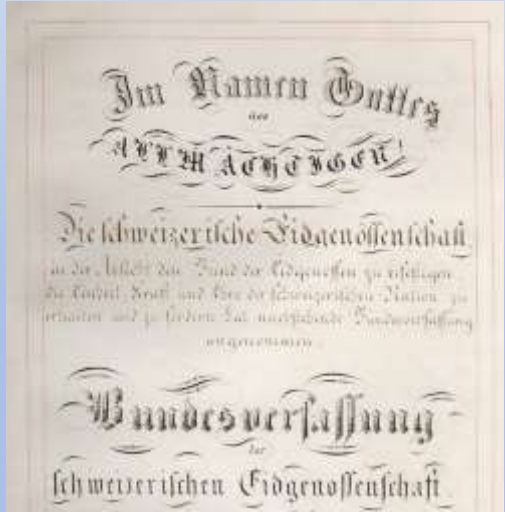 Im Namen Gottes
des
ALLMÄCHTIGEN!
Die schweizerische Eidgenossenschaft
in der Absicht den Bund der Eidgenossen zu befestigen
die Einheit Kraft und Ehre der schweizerischen Nation zu
erhalten und zu fördern hat nachstehende Bundesverfassung
angenommen.
Bundesverfassung
der
schweizerischen Eidgenossenschaft.